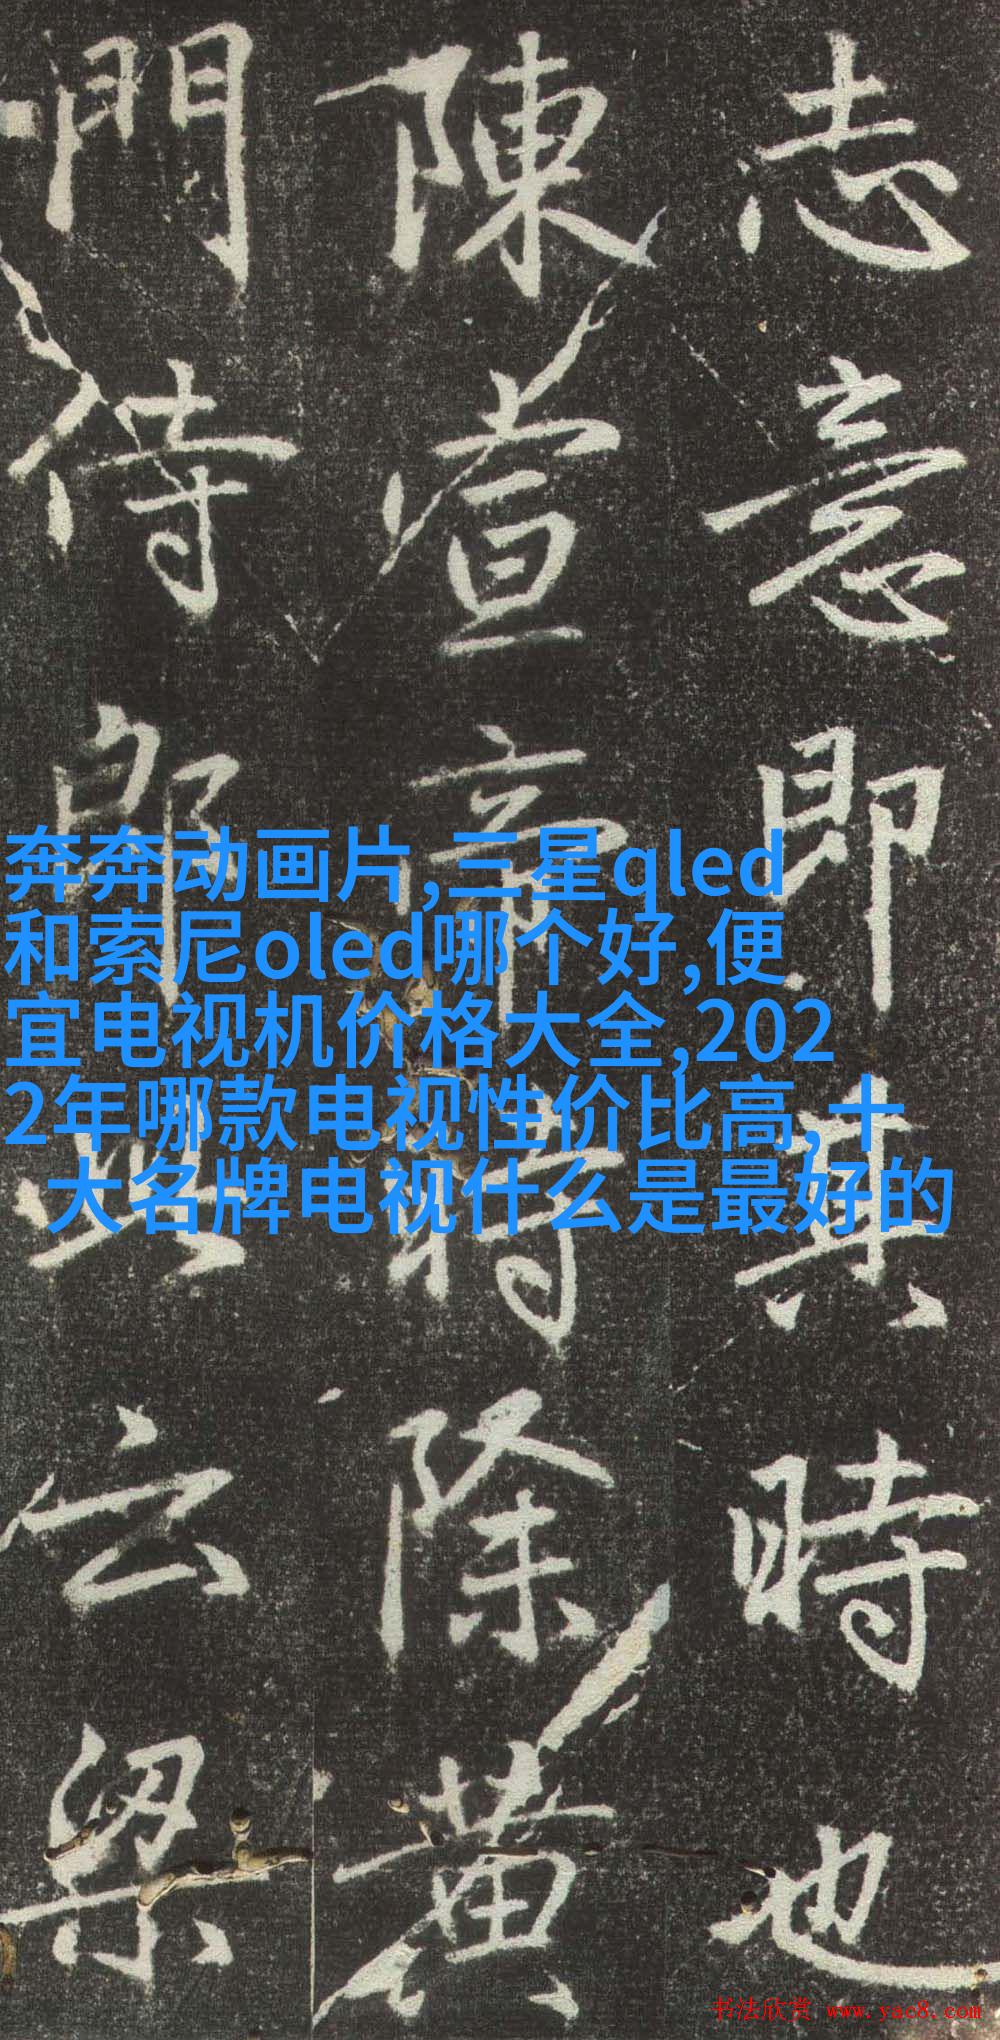 志意即其時也
陳宣帝時除黄
門侍郎云梁
奔奔动画片,三星qled
和索尼oled哪个好,便
宜电视机价格大全,202
2年哪款电视性价比高,十
大名牌电视什么是最好的
书法欣赏 www.yac8.com